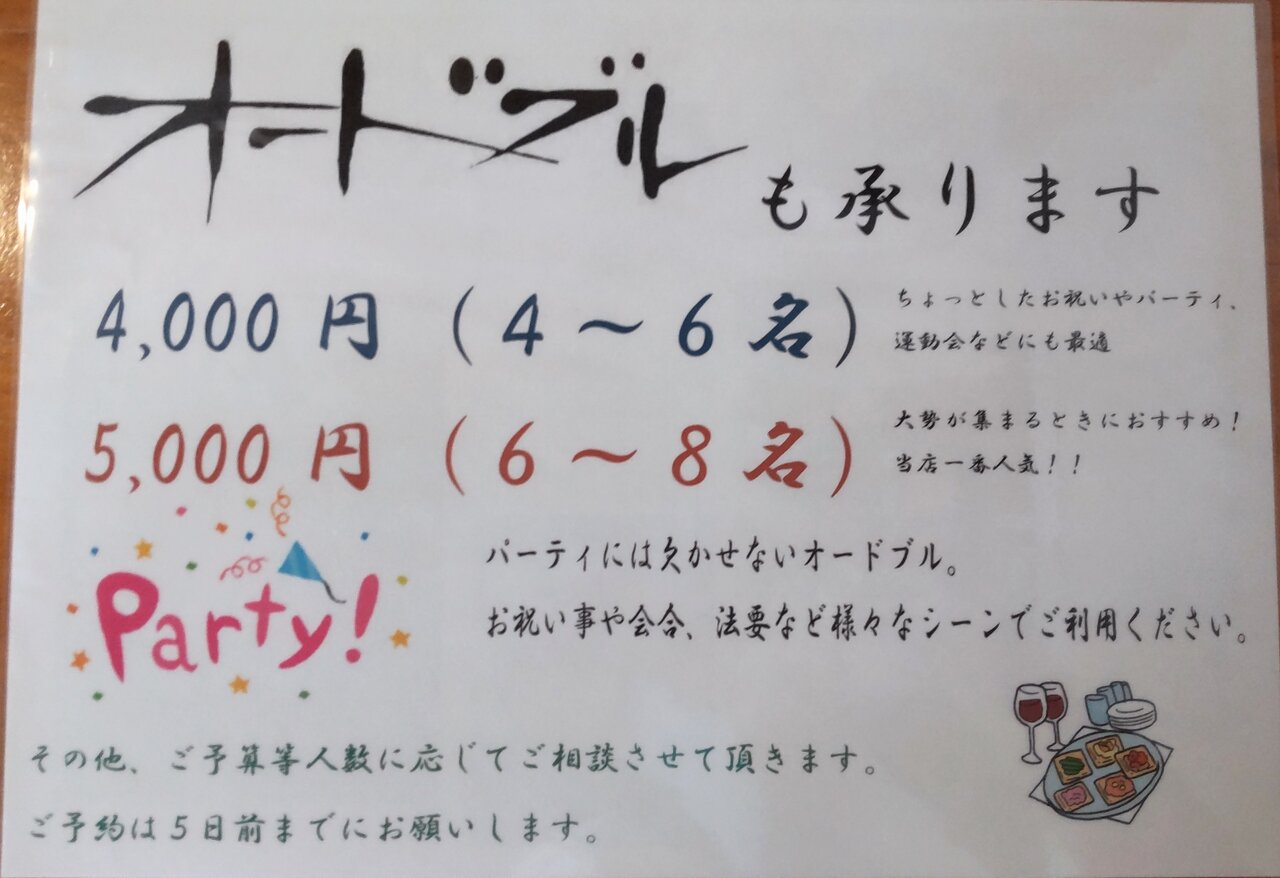 オードブルも承ります
4,000円（4～6名） ちょっとしたお祝いやパーティ、
運動会などにも最適
5,000円（6～8名） 大勢が集まるときにおすすめ！
当店一番人気！！
Party!
パーティには欠かせないオードブル。
お祝い事や会合、法要など様々なシーンでご利用ください。
その他、ご予算等人数に応じてご相談させて頂きます。
ご予約は5日前までにお願いします。